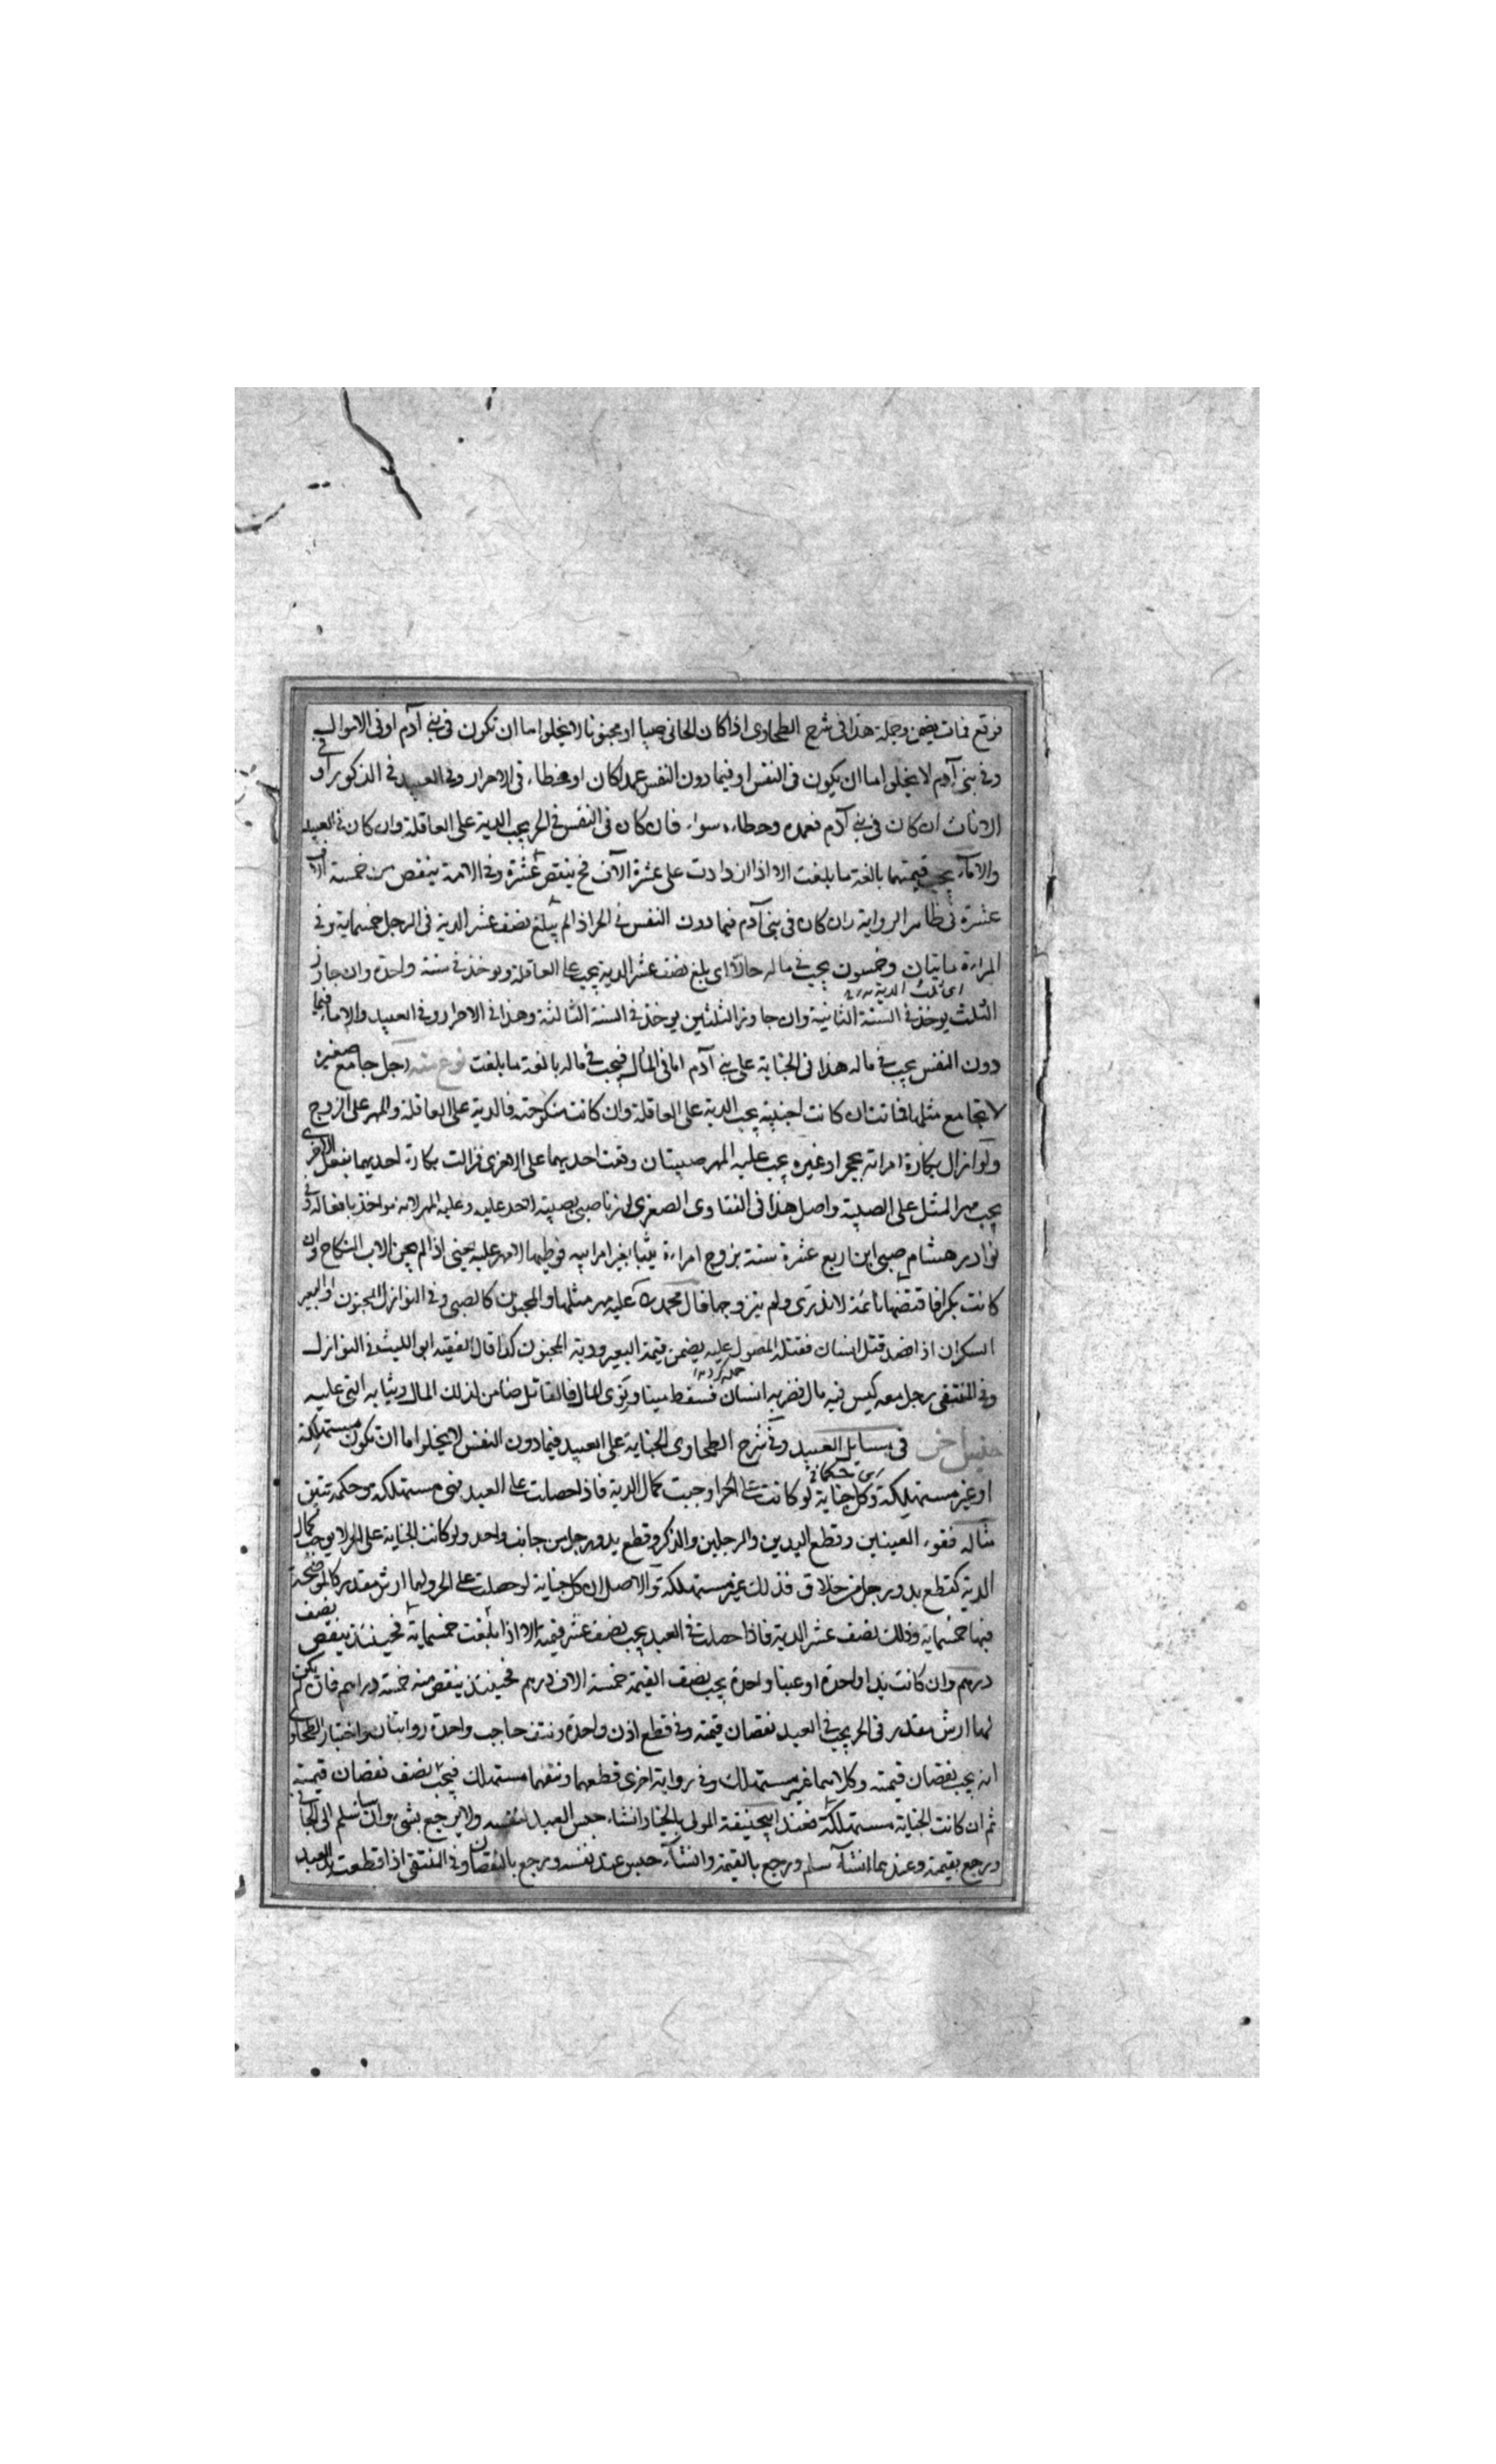 فوقع فمات يضمن وجملة هذا فى شرح الطحاوى اذا كان الجانى صبيا او مجنونا لا يخلوا اما ان تكون فى بنى آدم او فى الاموال
وفى بنى آدم لا يخلوا اما ان يكون فى النفس او فيما دون النفس عمدا كان او خطاء فى الاحرار وفى العبيد فى الذكور او فى
الاناث ان كان فى بنى آدم فعمده وخطاءه سواء فان كان فى النفس فى الحر يجب الدية على العاقلة وان كان فى العبيد
والاماء يجب قيمتهما بالغة ما بلغت الا اذا ازدادت على عشرة الآف فح ينقص عشرة وفى الامة ينقص من خمسة الاف
عشرة فى ظاهر الرواية وان كان فى بنى آدم فيما دون النفس فى الحر اذا لم يبلغ نصف عشر الدية فى الرجل خمسماية وفى
المراءة مايتان وخمسون يجب فى ماله حالا اى بلغ نصف عشر الدية يجب على العاقلة ويوخذ فى سنة واحدة وان جاوز
اى ثلث الدية
الثلث يوخذ فى السنة الثانية وان جاوز الثلثين يوخذ فى السنة الثالثة وهذا فى الاحرار وفى العبيد والاماء فيما
دون النفس يجب فى ماله هذا فى الجناية على بنى آدم اما فى المال فيجب فى ماله بالغة ما بلغت نوع منه رجل جامع صغيرة
لا يجامع مثلها فماتت ان كانت اجنبية يجب الدية على العاقلة وان كانت منكوحته فالدية على العاقلة والمهر على الزوج
ولو ازال بكارة امراته بحجر او غيره يجب عليه المهر صبيتان وقعت احديهما على الاخرى فزالت بكارة احديهما بفعل الاخرى
يجب مهر المثل على الصبية واصل هذا فى الفتاوى الصغرى لو زنا صبى بصبية لا حد عليه وعليه المهر لانه مواخذ بافعاله وفى
نوادر هشام صبى ابن اربع عشرة سنة تزوج امراءة ثيبا بغير امر ابيه فوطيها لا مهر عليه يعنى اذا لم يجز الاب النكاح وان
كانت بكرا فاقتضها نائمة لا تدرى ولم يتزوجها قال محمد عليه مهر مثلها والمجنون كالصبى وفى النوازل المجنون او البعير
السكران اذا قصد قتل انسان فقتله المصول عليه يضمن قيمة البعير ودية المجنون كذا قال الفقيه ابو الليث فى النوازل
وفى المنتقى رجل معه كيس فيه مال فضربه انسان فسقط ميتا وتوى المال فالقاتل ضامن لذلك المال وثيابه التى عليه
جنس اخر فى مسايل العبيد وفى شرح الطحاوى الجناية على العبيد فيما دون النفس لا يخلوا اما ان تكون مستهلكة
او غير مستهلكة وكل جناية لو كانت على الحر اوجبت كمال الدية فاذا حصلت على العبيد فهى مستهلكة وحكمه تبين
مثاله فقوء العينين وقطع اليدين والرجلين والذكر وقطع يد ورجل من جانب واحد ولو كانت الجناية على الحر لا يوجب كمال
الدية كقطع يد ورجل من خلاف فذلك غير مستهلكة والاصل ان كل جناية لو حصلت على الحر ولها ارش مقدر كالموضحة
فيها خمسماية وذلك نصف عشر الدية فاذا حصلت فى العبد يجب نصف عشر قيمته الا اذا بلغت خمسماية فحينئذ ينقص نصف
درهم وان كانت يدا واحدة او عينا واحدة يجب نصف القيمة خمسة الاف درهم فحينئذ ينقص منه خمسة دراهم فان لم يكن
لها ارش مقدر فى الحر يجب فى العبد نقصان قيمته وفى قطع اذن واحدة ونتف حاجب واحدة روايتان واختيار الطحاوى
انه يجب نقصان قيمته وكلاهما غير مستهلك وفى رواية اخرى قطعهما ونتفهما مستهلك فيجب نصف نقصان قيمته
ثم ان كانت الجناية مستهلكة فعند ابيحنيفة المولى بالخيار انشاء حبس العبد لنفسه ولا يرجع بشى وان شا سلم الى الجانى
ويرجع بقيمته وعندهما انشآء سلم ويرجع بالقيمة وانشآء حبس عنده نفسه ويرجع بالنقصان وفى المنتقى اذا قطعت يد العبد